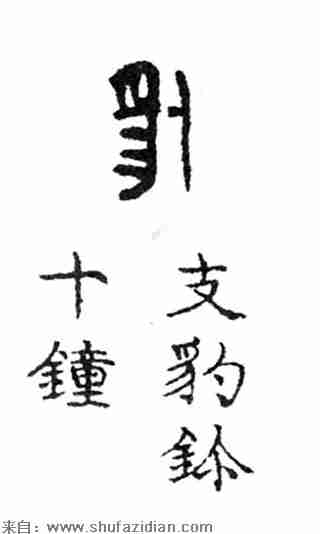 支豹鉨
十鐘
来自：www.shufazidian.com